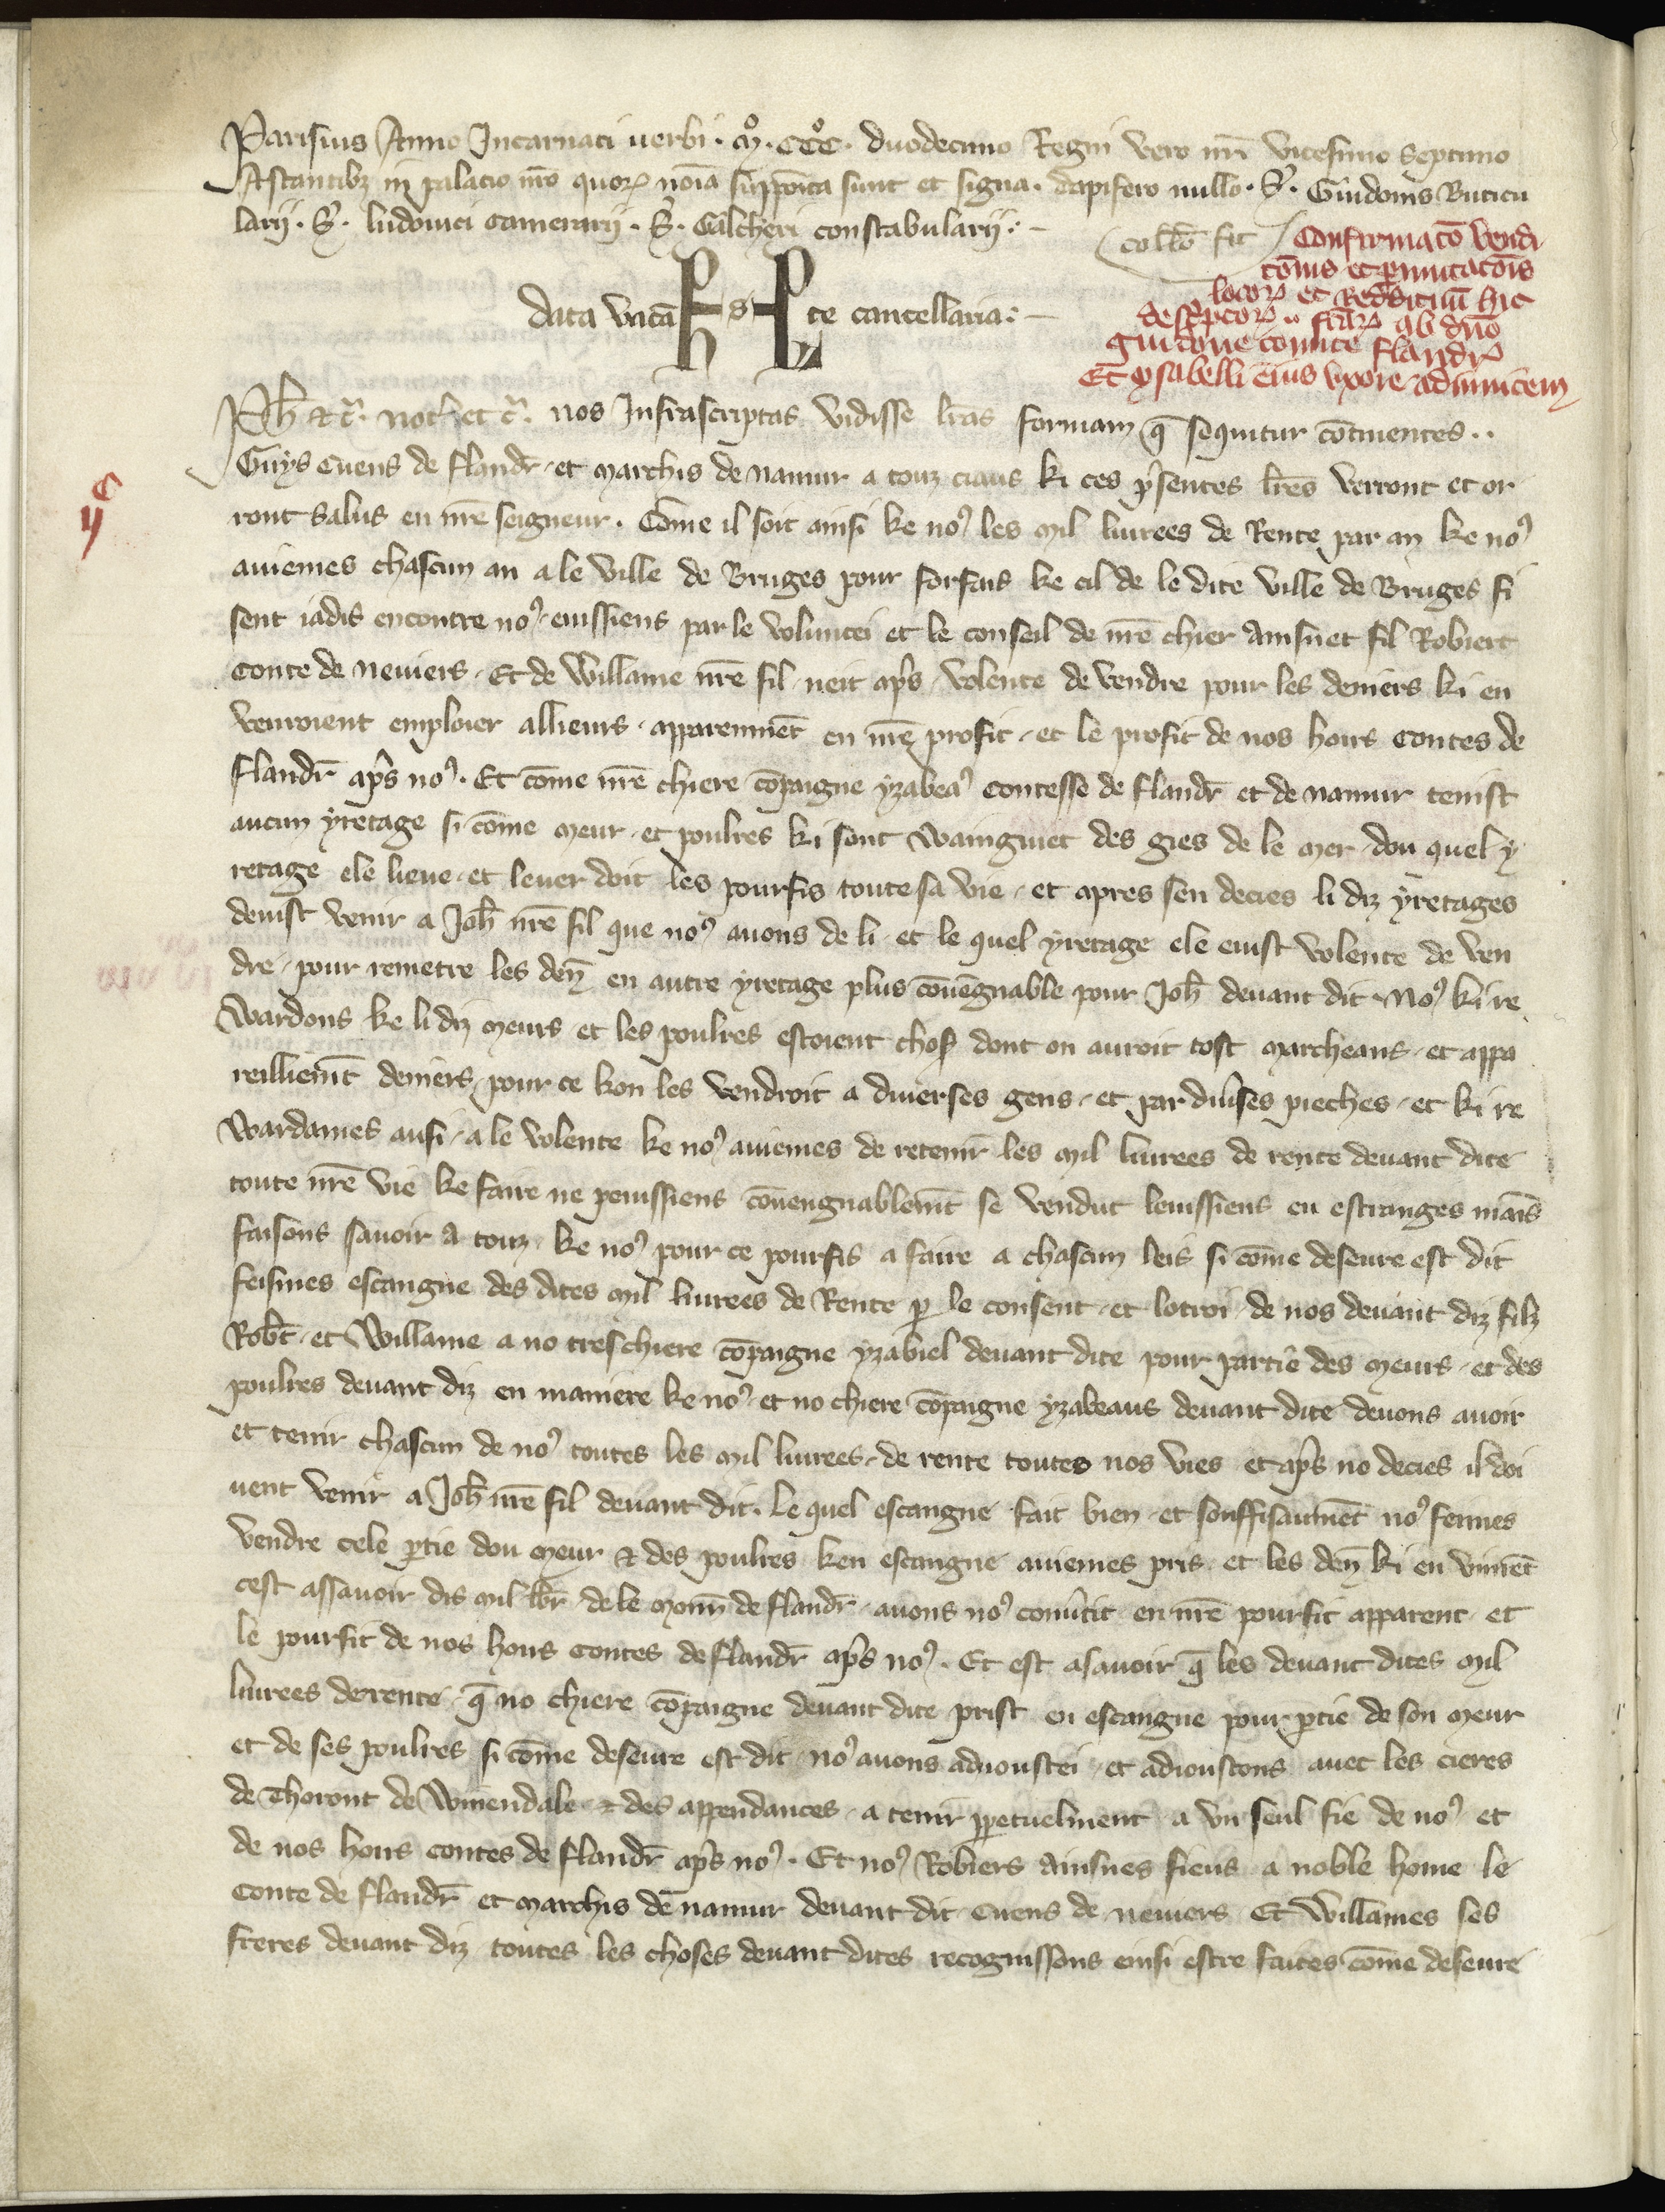 Parisius Anno Incarnati uerbi · Mº · CCCº · duodecimo Regni vero nr̄i vicesimo septimo
Astantibꝫ in palacio nr̄o quoꝝ noīa supposita sunt et signa · dapifero nullo · S̉ · Guidonis Buticu
larii · S̉ · ludouici camerarii · S̉ · Galcheri constabularii : –
collō fit
data vacā te cancellaria : –
Confirmacō vendi
cōnis et ꝑmutacōis
locoꝝ et Reddituū hic
descriptoꝝ .. fcāꝝ ab dn̄o
guidone comite flandr̄
Et ysabelli eius vxore adinuicem
cij
Ph̄ ⁊ c̄ · Notꝝ et c̄ · nos Infrascriptas vidisse lr̄as formam q̄ sequitur cōtinentes ..
Guys Cuens de flandr̄ · et Marchis de Namur a touz ciaus ki ces p̄sentes lr̄es verront et or
ront Salus en nr̄e seigneur · Cōme il soit ainsi ke noꝰ les Mil liurees de Rente par an ke noꝰ
auiemes chascun an a le ville de Bruges pour forfais ke cil de le dite ville de Bruges fi
sent iadis encontre noꝰ · euissiens par le voluntei et le conseil de nr̄e chier ainsnet fil Robiert
Conte de Neuiers · Et de Willame nr̄e fil neit ap̄s · volente de vendre pour les deniers ki en
venroient emploier allieurs · apparenmēt en nr̄e profit · et le profit de nos hoirs contes de
flandr̄ ap̄s noꝰ · Et cōme nr̄e chiere cōpaigne yzabeaꝰ contesse de flandr̄ et de namur tenist
aucun yretage si cōme Meur · et poulres ki sont Waingniet des gies de le Mer · dou quel y
retage ele lieue · et leuer doit les pourfis toute sa vie · et apres sen decies li diz yretages
deuist venir a Joh̄ nr̄e fil que noꝰ auons de li · et le quel yretage ele euist volente de ven
dre · pour remetre les den̄ en autre yretage plus cōuēgnable pour Joh̄ deuant dit · Noꝰ ki re
Wardons ke li diz Meurs et les poulres estoient chosꝭ dont on auroit tost Marcheans · et appa
reilliem̄t deniers · pour ce kon les vendroit a diuerses gens · et par diu̇ses pieches · et ki re
Wardames ausi · a le volente ke noꝰ auiemes de retenir les Mil liurees de rente deuant dite
toute nr̄e vie ke faire ne peuissiens cōuengnablem̄t se vendut leuissiens en estranges mains
faisons sauoir a touz · ke noꝰ pour ce pourfis a faire a chascun leis si cōme deseure est dit
feismes escangne des dites Mil liurees de Rente ꝑ le consent · et lotroi de nos deuant diz filz
Rob̄t · et Willame a no treschiere cōpaigne yzabiel deuant dite pour partie des Meurs · et des
poulres deuant diz en maniere ke noꝰ · et no chiere cōpaigne yzabeaus deuant dite deuons auoir
et tenir chascun de noꝰ toutes les Mil liurees · de rente toutes nos vies et ap̄s no decies il doi
uent venir a Joh̄ nr̄e fil deuant dit · le quel escangne fait bien · et souffisaumēt noꝰ feimes
vendre cele ꝑtie dou Meur ⁊ des poulres ken escangne auiemes pris · et les den̄ ki en vinrēt
cest assauoir dis Mil lb̄r de le Monn̄ de flandr̄ · auons noꝰ conu̇tit en nr̄e pourfit apparent · et
le pourfit de nos hoirs Contes de flandr̄ ap̄s noꝰ · Et est asauoir q̄ les deuant dites Mil
liurees de rente · q̄ no chiere cōpaigne deuant dite prist en escangne pour ꝑtie de son Meur
et de ses poulres si cōme deseure est dit · noꝰ auons adioustei · et adioustons auec les tieres
de Thoront de Winendale · ⁊ des appendances · a tenir ꝑpetuelment a vn seul fie de noꝰ et
de nos hoirs contes de flandr̄ ap̄s noꝰ · Et noꝰ Robiers ainsnes fieus a noble home le
Conte de flandr̄ et Marchis de namur deuant dit Cuens de Neuiers Et Willames ses
freres deuant diz toutes les choses deuant dites recognissons einsi estre faites cōme deseure